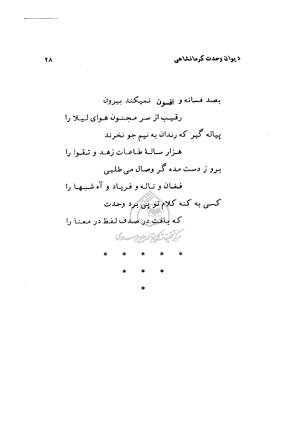 دیوان وحدت کرمانشاهی ۲۸
بصد فسانه و افسون نمیکند بیرون
رقیب از سر مجنون هوای لیلا را
پیاله گیر که رندان به نیم جو نخرند
هزار سالهٔ طاعات زهد و تقوا را
بروز دست مده گر وصال می طلبی
فغان و ناله و فریاد و آه شبها را
کسی به کنه کلام تو پی برد وحدت
که یافت در صدف لفظ در معنا را
* * * * *
* * *
*